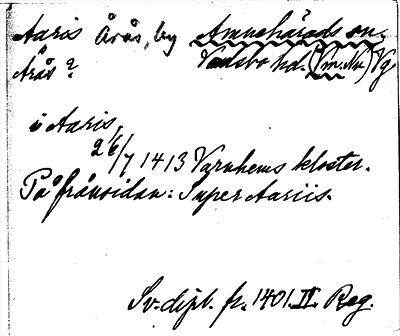 Aaris Årås, by Amnehärads sn,
Årås? Vadsbo hd. (Vm. Nn.) Vg
i Aaris,
26/7 1413 Varnhems kloster.
På frånsidan: Super Aariis.
Sv. dipl. fr. 1401. II. Reg.